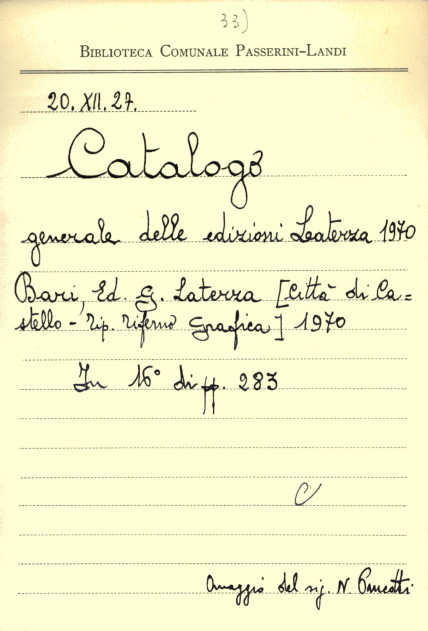 33)
BIBLIOTECA COMUNALE PASSERINI-LANDI
20. XII. 27.
Catalogo
generale delle edizioni Laterza 1970
Bari, Ed. G. Laterza [Città di Ca=
stello - Tip. Grafica] 1970
In 16° di pp. 283
C
Omaggio del sig. N.